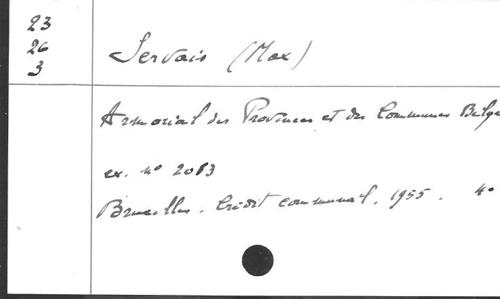 23
26
3
Servais (Max)
Armorial des Provinces et des Communes Belge
ex. nº 2083
Bruxelles. Crédit communal. 1955. 4º